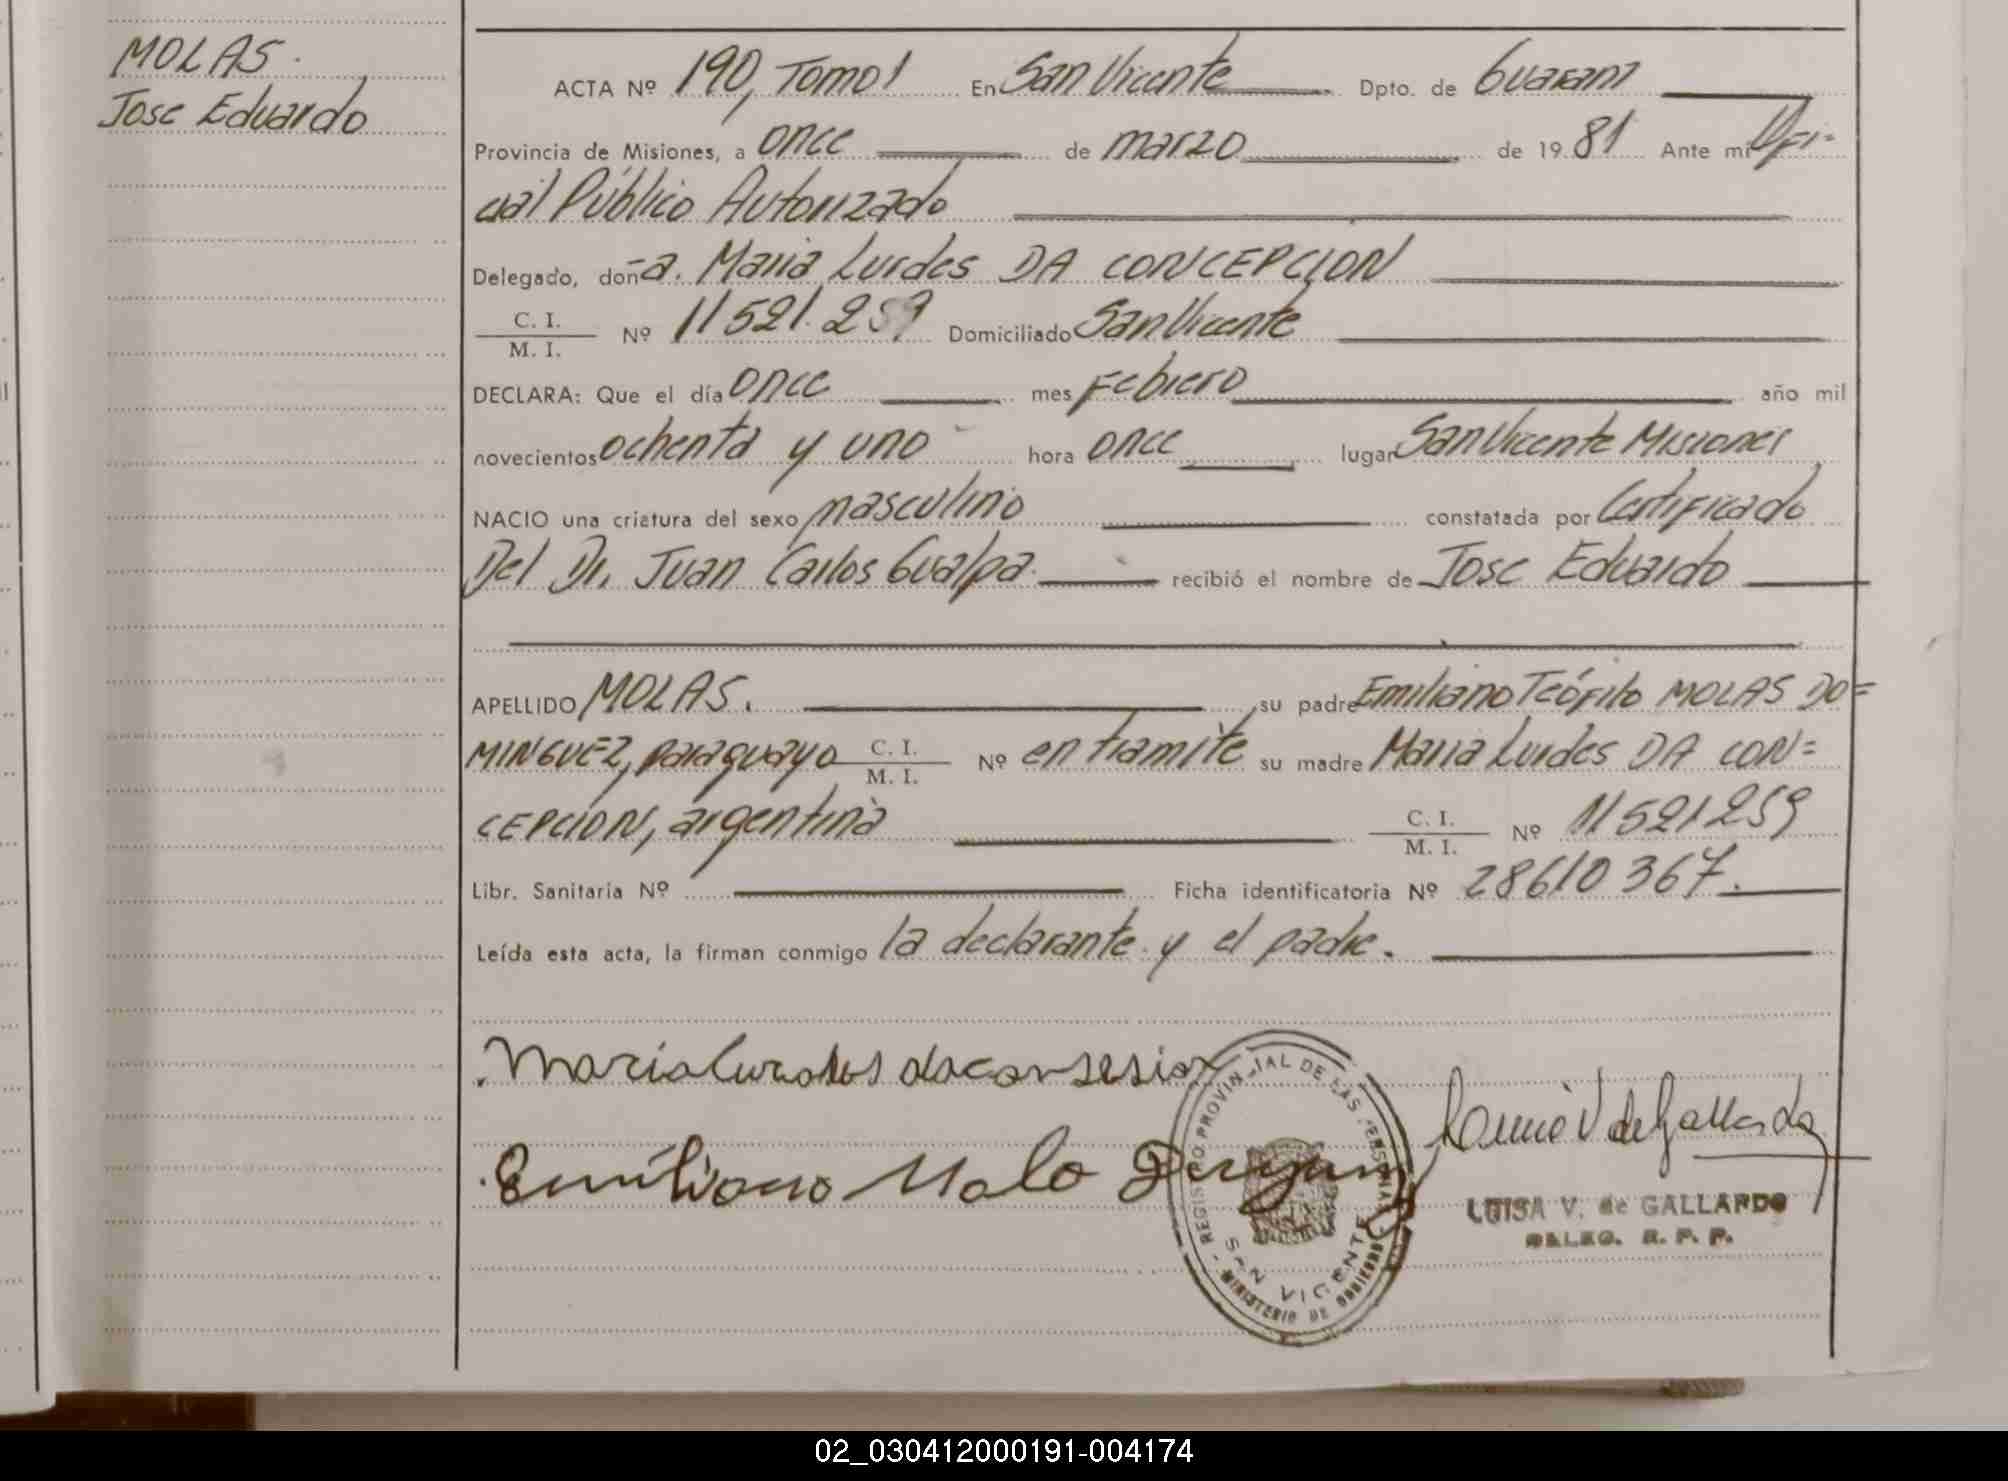 MOLAS.
Jose Eduardo
ACTA Nº 190, Tomo 1 En San Vicente Dpto. de Guarani
Provincia de Misiones, a once de marzo de 1981 Ante mi Ofi-
cial Público Autorizado
Delegado, doña. Maria Lurdes DA CONCEPCION
C. I.
M. I. Nº 11521.259 Domiciliado San Vicente
DECLARA: Que el día once mes Febrero año mil
novecientos ochenta y uno hora once lugar San Vicente Misiones
NACIO una criatura del sexo masculino constatada por Certificado
Del Dr. Juan Carlos Gualpa recibió el nombre de Jose Eduardo
APELLIDO MOLAS. su padre Emiliano Teófilo MOLAS DO=
MINGUEZ, paraguayo C. I. M. I. Nº en tramite su madre Maria Lurdes DA CON=
CEPCION, argentina C. I. M. I. Nº 11521259
Libr. Sanitaria Nº Ficha identificatoria Nº 28610367.
Leída esta acta, la firman conmigo la declarante y el padre.
Maria Lurdes daconsesion
Emiliano Mola
V de Gallardo
REGISTRO PROVINCIAL DE LAS PERSONAS
SAN VICENTE
MINISTERIO DE GOBIERNO
LUISA V. de GALLARDO
DELEG. R. P. P.
02_030412000191-004174